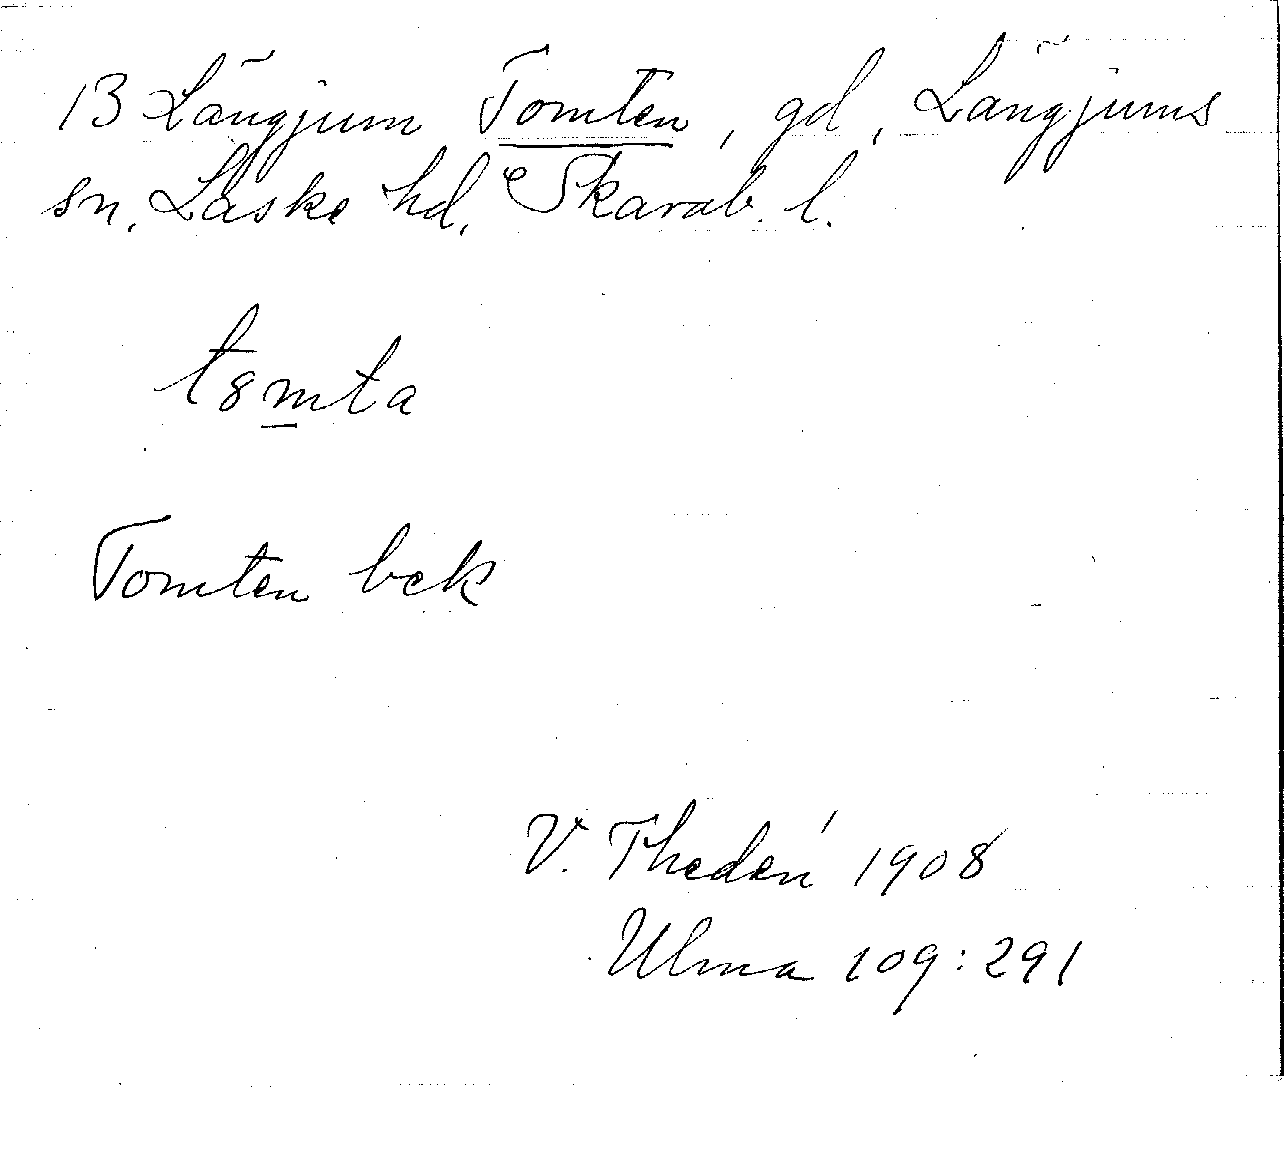 13 Längjum Tomten, gd, Längjums
sn. Laske hd. Skarab. l.
t8mta
Tomten bek
V. Thedén 1908
Ulma 109:291